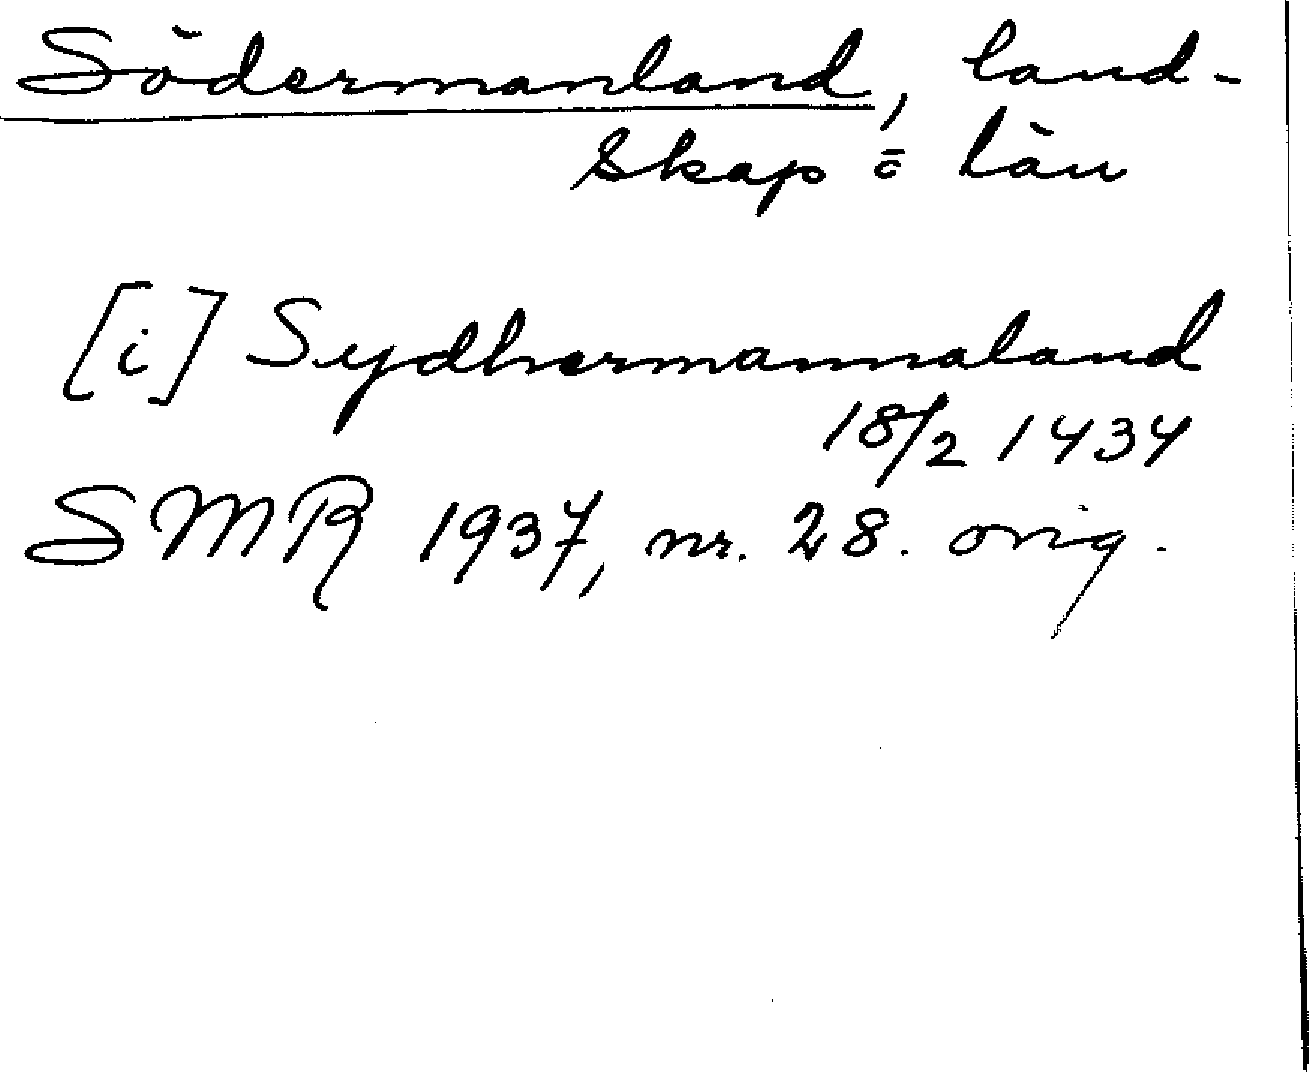 Södermanland, land-
skap o län
[i] Sydhermannaland
18/2 1434
SMR 1937, nr. 28. orig.